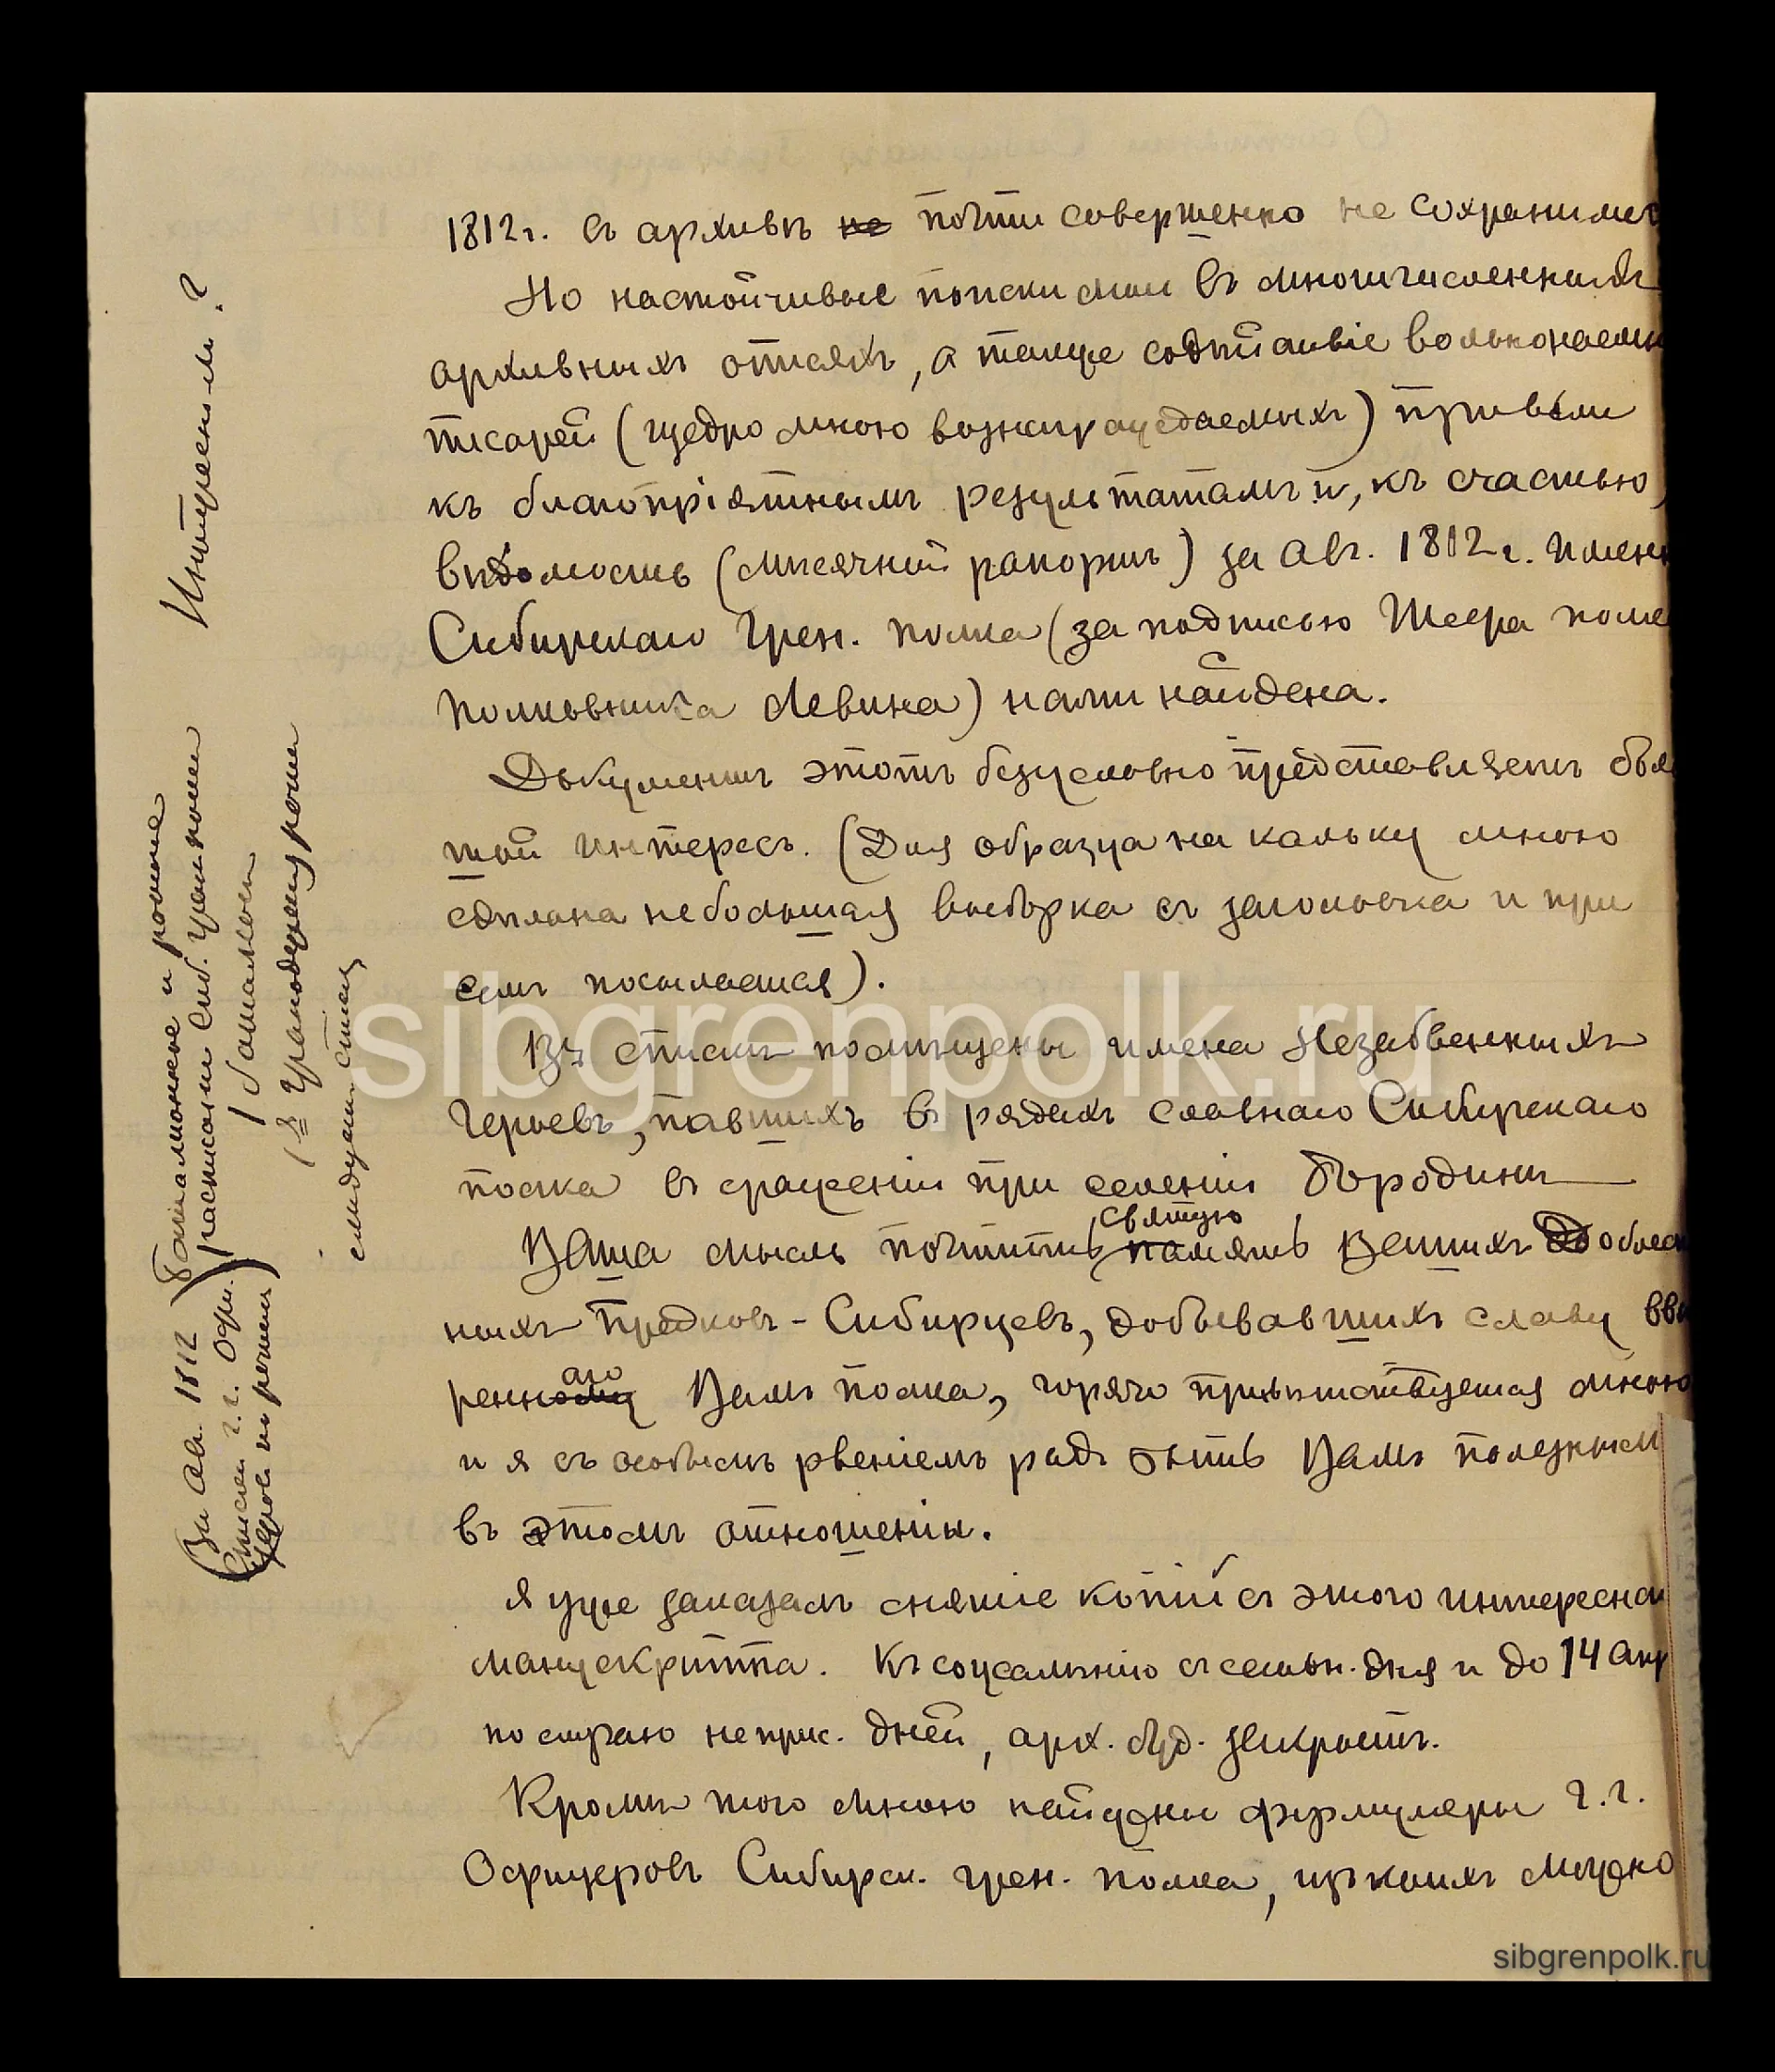 1812 г. въ архивѣ не почти совершенно не сохранилис
Но настойчивые поиски мои въ многочисленныхъ
архивныхъ описяхъ, а также содѣйствіе вольнонаемн
писарей (щедро мною вознаграждаемыхъ) привели
къ благопріятнымъ результатамъ и, къ счастью,
вѣдомость (мѣсячный рапортъ) за Авг. 1812 г. имен
Сибирскаго Грен. полка (за подписью Шефа полк
Полковника Левина) нами найдена.
Документъ этотъ безусловно представляетъ боль
шой интересъ. (Для образца на кальку мною
сдѣлана небольшая выборка съ заголовка и при
семъ посылается).
Въ списки помѣщены имена Незабвенныхъ
Героевъ, павшихъ въ рядахъ славнаго Сибирскаго
полка въ сраженіи при селеніи Бородинѣ
святую
Ваша мысль почтить память Вашихъ Доблест
ныхъ Предковъ-Сибирцевъ, добывавшихъ славу ввѣ
аго
ренному Вамъ полка, горячо привѣтствуется мною
и я съ особымъ рвеніемъ радъ быть Вамъ полезным
въ этомъ отношеніи.
Я уже заказалъ снятіе копіи съ этого интересна
манускрипта. Къ сожалѣнію съ сегодн. дня и до 14 Апр
по случаю неприс. дней, арх. буд. закрытъ.
Кромѣ того мною найдены формуляры г.г.
Офицеровъ Сибирск. грен. полка, изъ коихъ можно
За Авг. 1812
(Списки г.г. Офи.
Баталіонное и ротное
росписаніе Сиб. гран. полка
1 баталіонъ
следуетъ списки
Интересно-ли?
sibgrenpolk.ru
sibgrenpolk.ru